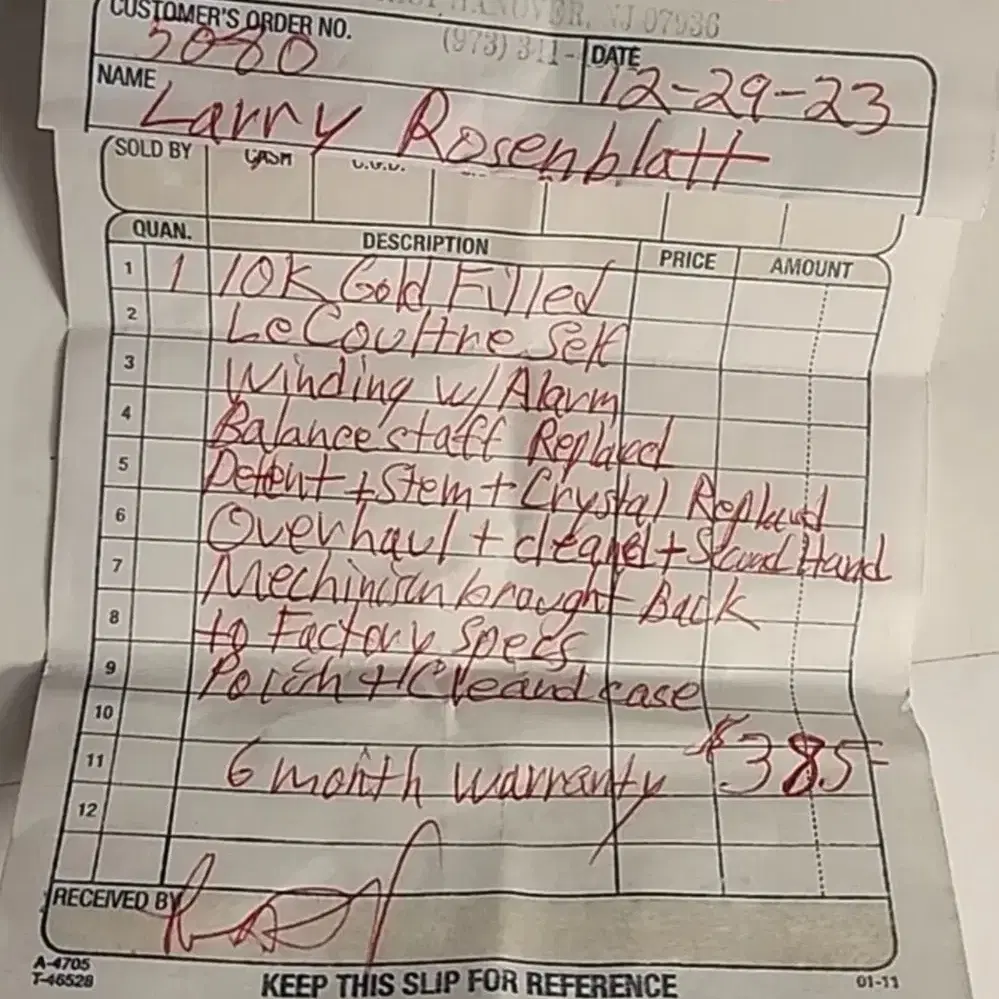 HANOVER, NJ 07936
CUSTOMER'S ORDER NO.
(973) 311-
DATE
5080
12-29-23
NAME
Larry Rosenblatt
SOLD BY
CASH
C.O.D.
QUAN.
DESCRIPTION
PRICE
AMOUNT
1 1 10K Gold Filled
2 LeCoultre Self
3 Winding w/ Alarm
4 Balance staff Replaced
5 Detent + Stem + Crystal Replaced
6 Overhaul + cleaned + Second Hand
7 Mechinism brought Back
8 to Factory Specs
9 Polish + Cleaned case
10
11 6 month warranty $385-
12
RECEIVED BY
A-4705
T-46528
KEEP THIS SLIP FOR REFERENCE
01-11